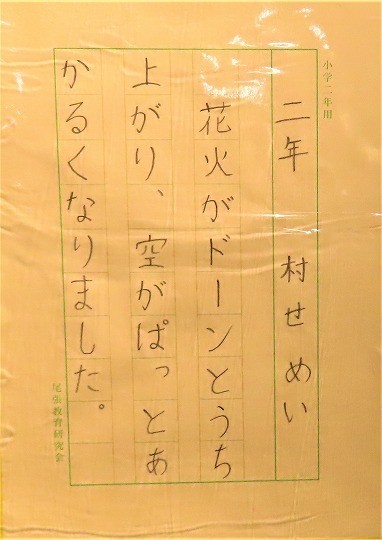 小学二年用
二年 村せ めい
花火がドーンとうち
上がり、空がぱっとあ
かるくなりました。
尾張教育研究会